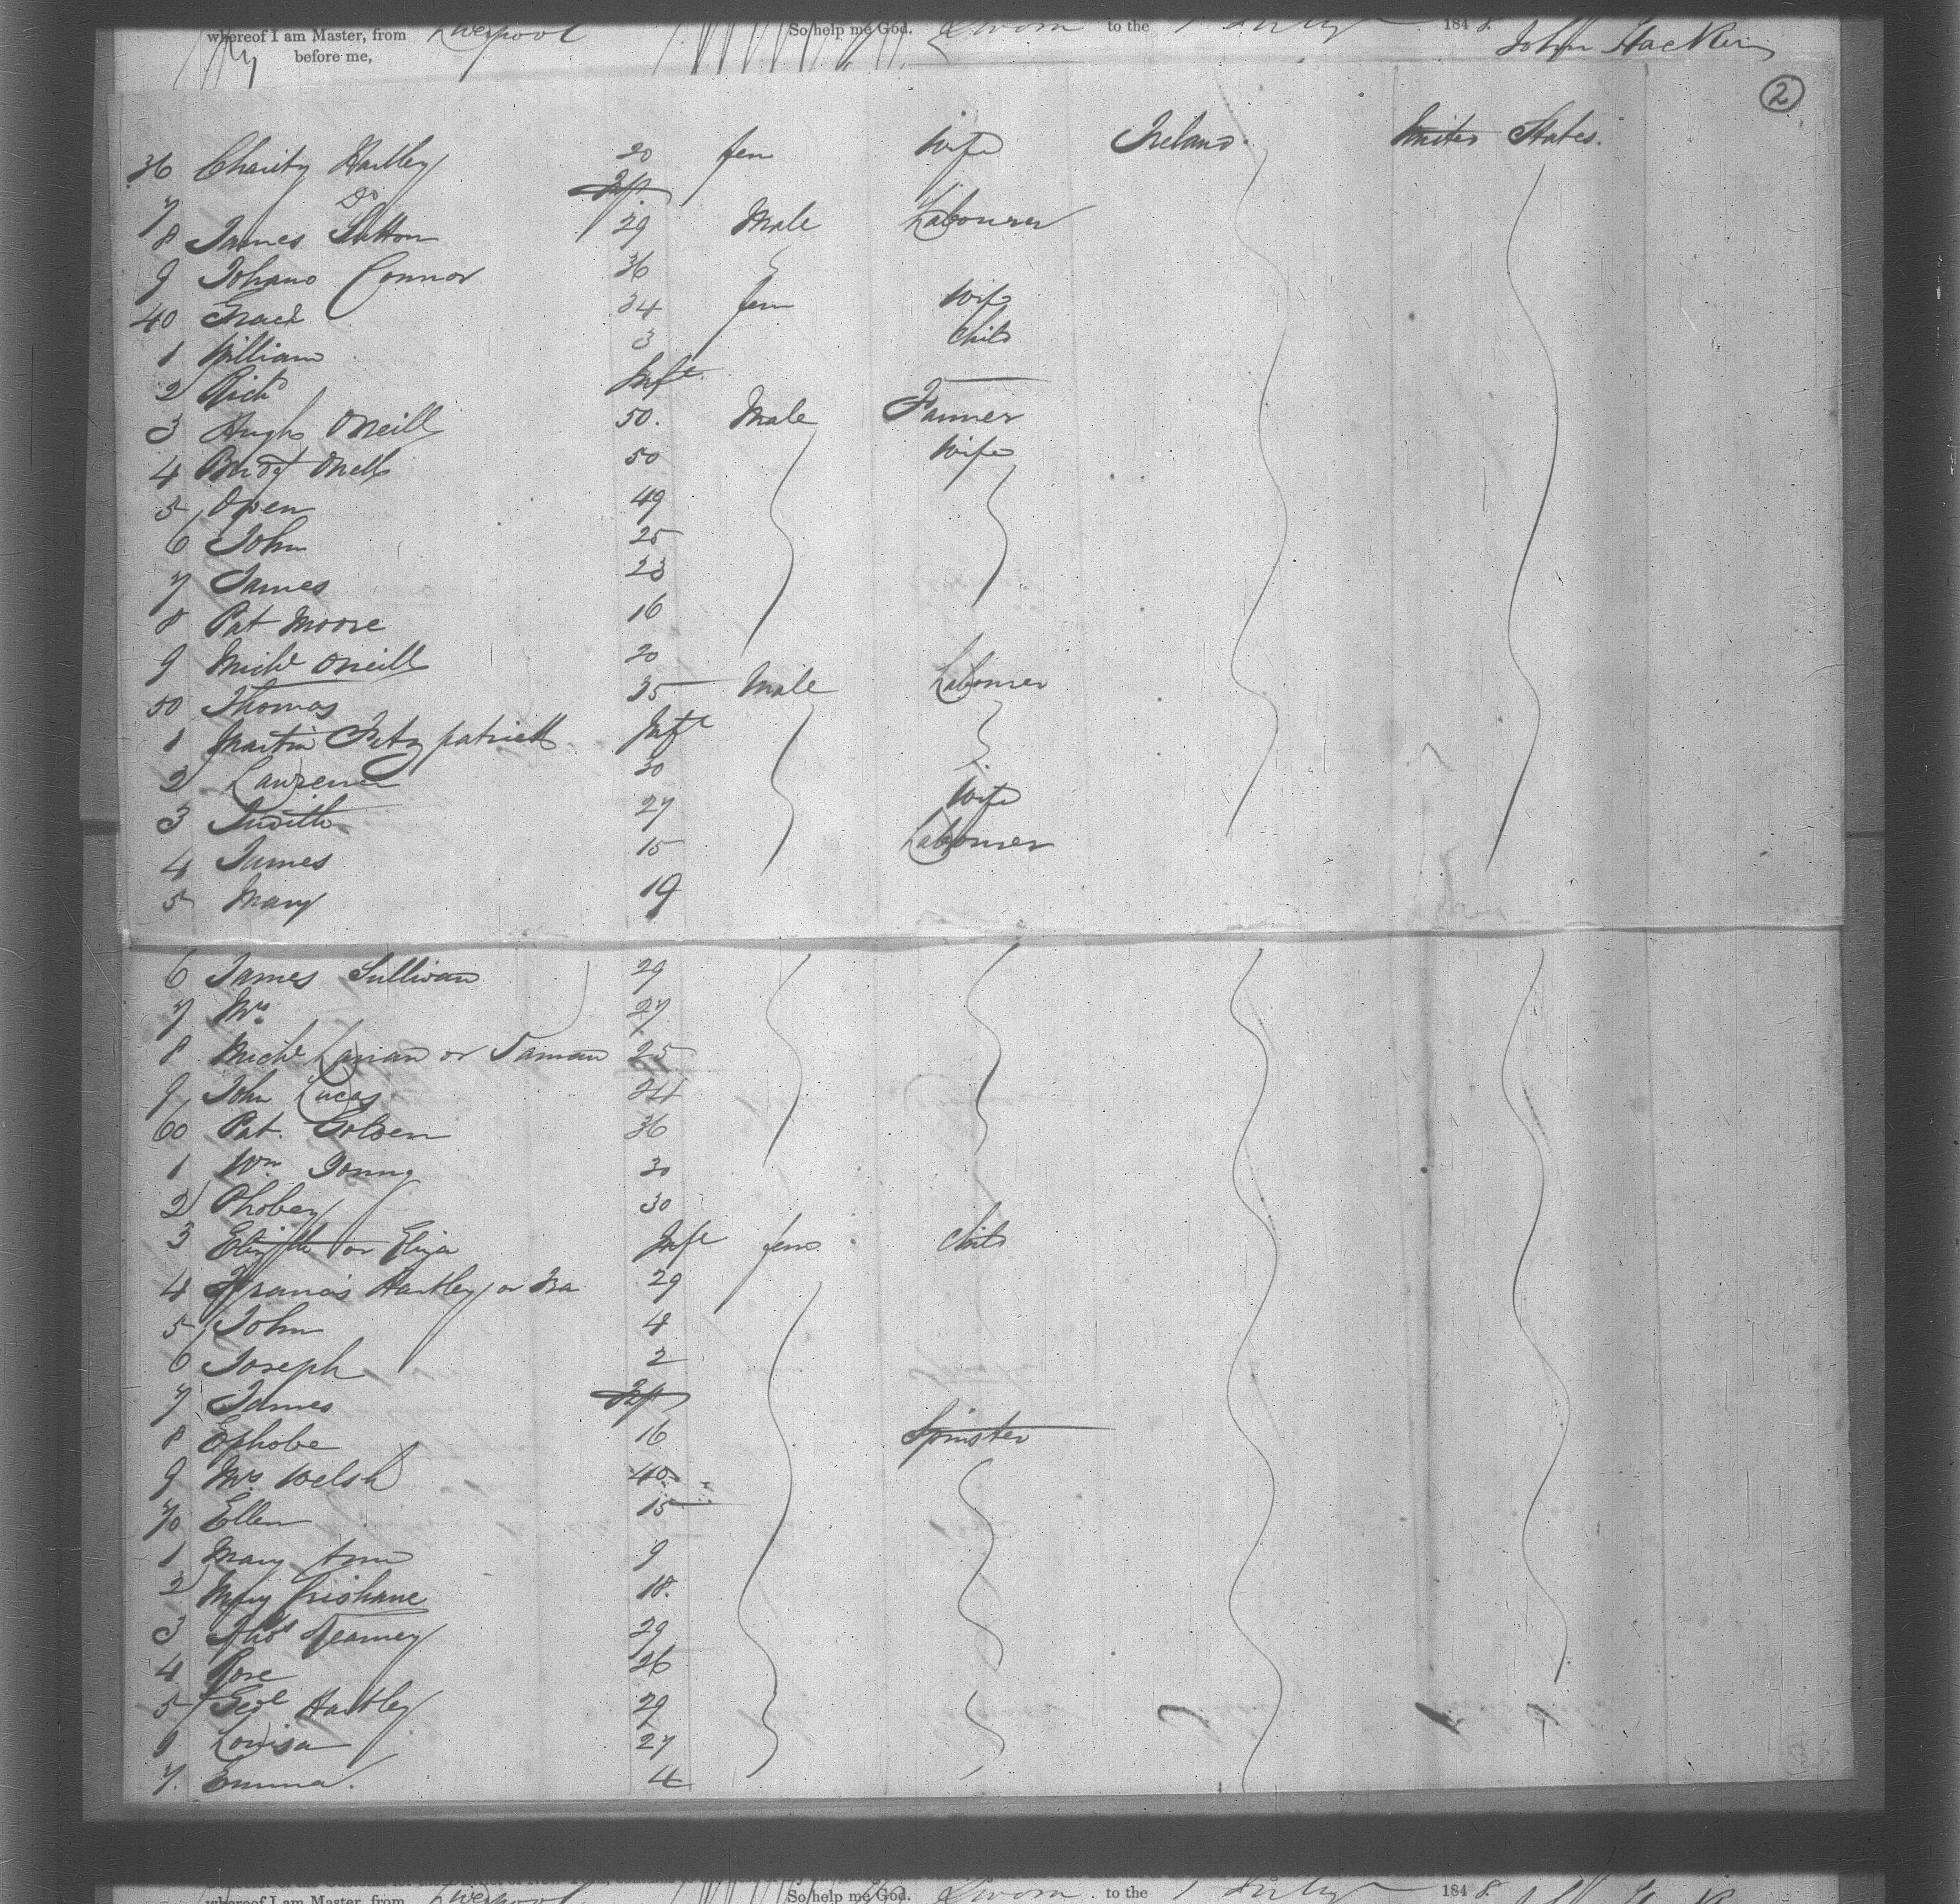 whereof I am Master, from Liverpool So help me God. Sworn to the 1 July 1848.
before me, John
2
36 Charity Hartley 20 fem Wife Ireland. United States.
7 Do Inf.
8 James Sutton 29 Male Labourer
9 Johano Connor 36
40 34 fem Wife
1 William 3 Child
2 Richd Inft
3 Hugh ONeill 50. Male Farmer
4 Bridgt ONeill 50 Wife
5 Owen 49
6 John 25
7 James 23
8 Pat Moore 16
9 Michl ONeill 20
50 Thomas 35 Male Labourer
1 Martin Fitzpatrick Inft
2 Lawrence 30
3 Judith 27 Wife
4 James 15 Labourer
5 Mary 19
6 James Sullivan 29
7. Mrs 27
8 Michl Lanan or 25
9 John Lucas 24
60 Pat. 36
1 Wm Young 30
2 Phobey 30
3 Elizth or Eliza Inft fem Child
4 Francis Hartley or 29
5 John 4
6 Joseph 2
7 James Inf
8 Ephobe 16 Spinster
9 Mrs Welsh 40
70 Ellen 15
1 Mary Ann 9
2 Mary 18.
3 Thos Kearney 29
4 Rose 26
5 Geo Hartley 29
6 Louisa 27
7. Emma. 4
whereof I am Master, from Liverpool So help me God. Sworn to the 1 July 1848.